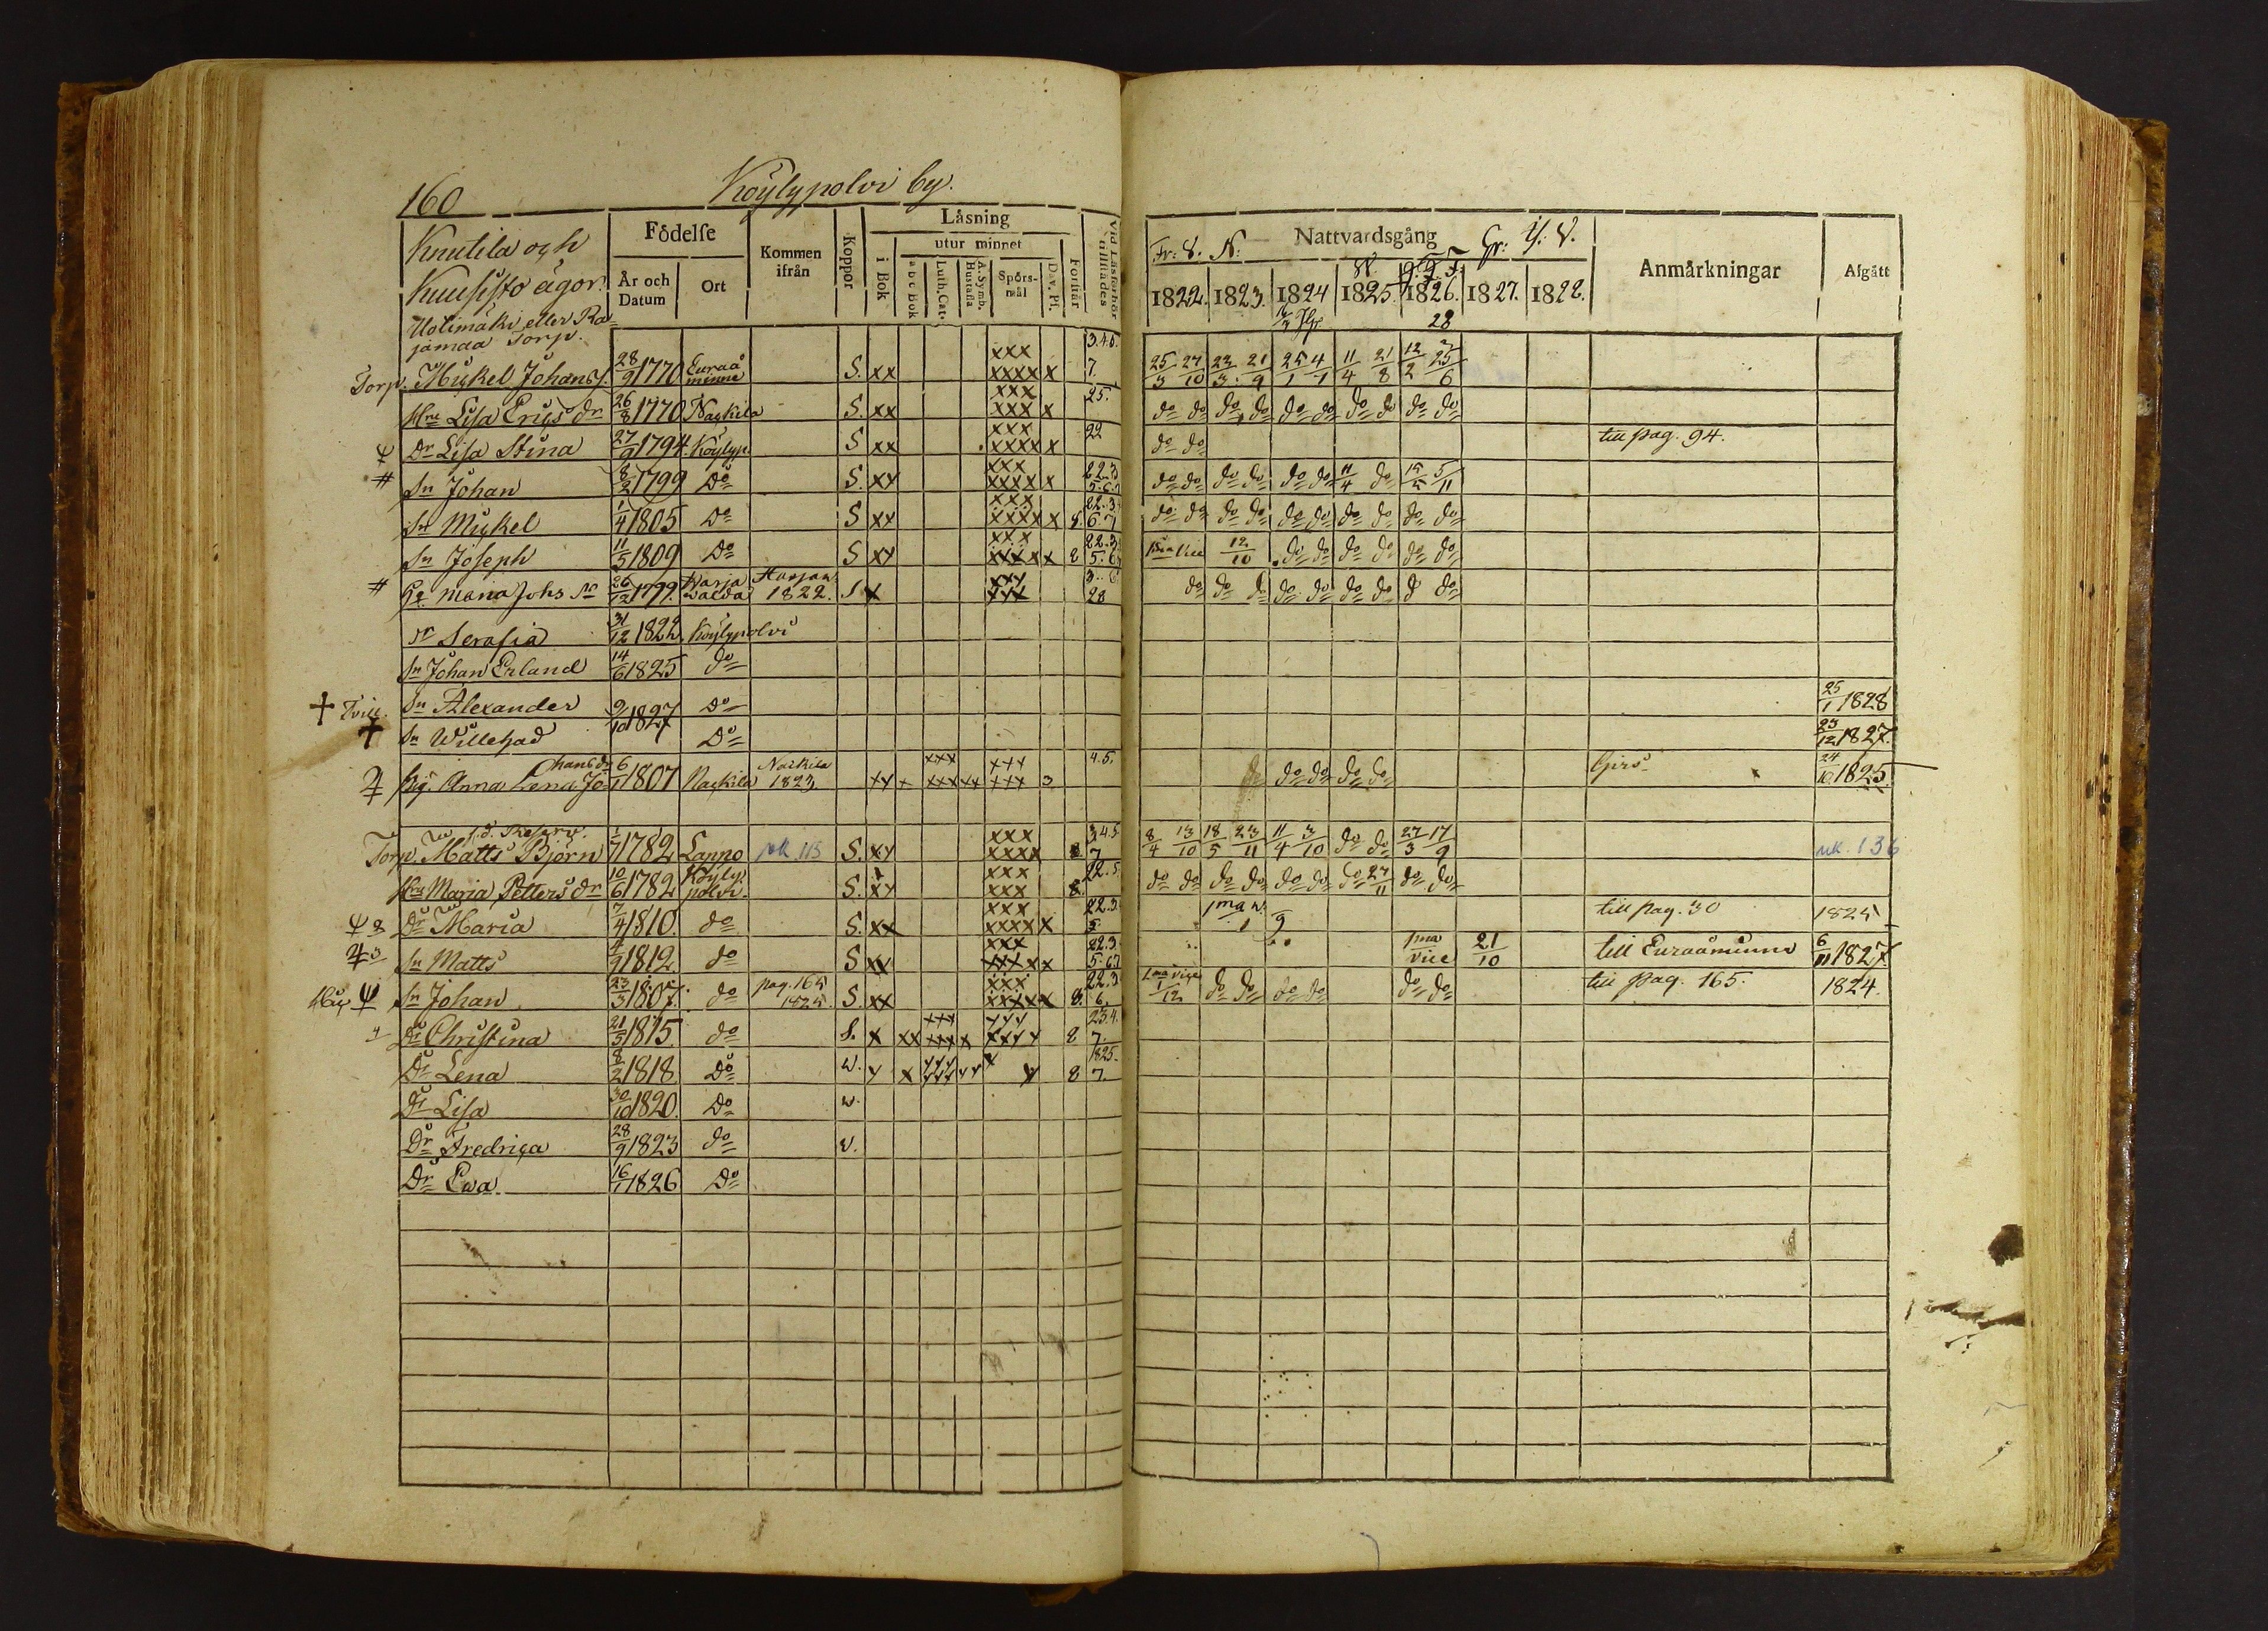 160 Köylypolvi by.
Knutila och
Kuusisto ägor.
Uotimäki eller Ra-
jamaa Torp.
Födelse
År och Datum
Ort
Kommen ifrån
Koppor
Låsning
i Bok
utur minnet
a b c Bok
Luth. Cat.
A. Symb. Hustafla
Spörs-mål
Dav. Pf.
Förstår
Vid Läseförhör tillstädes
Fr: 8. N: Nattvardsgång
1822. 1823. 1824 1825. 1826. 1827. 1828.
Anmärkningar
Afgått
Torp. Mickel Johans s. 28/9 1770 Euraå minne S. xx xxx xxxx x 3.4.5. 7. 25/3 27/10 23/3 21/9 25/1 4/7 11/4 21/8 12/2 25/6
Hu Lisa Erics dr 26/8 1770 Nackila S. xx xxx xxx x 25. do do do do do do do do do do
Dr Lisa Stina 27/9 1794. Köylyp. S xx xxx xxxx x 22 do do till pag. 94.
# Sn Johan 8/2 1799 Do S. xx xxx xxxx x 22.3 do do do do do do 11/4 do 15/5 5/11
Sn Mickel 1/4 1805 Do S xx xxx xxxx x 8. 22.3 6.7 do do do do do do do do do do
Sn Joseph 11/3 1809 Do S xx xxx xxxx x 8 22.3 5.6 12/10 do do do do do do
# Maria Johs dr 26/12 1799 Harja walda 1822. S x xxx xxx 28 do do do do do do do do do
Dr Serafia 31/12 1822 Köylypolvi
Sn Johan Erland 14/6 1825 do
† Tvill. Sn Alexander 9/10 1827 Do 25/1 1828
† Sn Willehad Do 23/12 1827.
Pig. Anna Lena Johans dr 6/1 1807 Nackila Nackila 1823 xx x xxx xxx xx xxx xxx 3 4.5. do do do do do 24/10 1825.
Torp. f.d. Reserv. Matts Björn 1/7 1782 Lappo rk. 113 S. xx xxx xxxx 8 3.4.5 7 8/4 13/10 18/5 23/11 11/4 3/10 do do 27/3 17/9 rk. 136
Hu Maria Petters dr 10/6 1782 Köyly polvi. S. xx xxx xxx 8. 22.5. do do do do do do do 27/11 do do
Dr Maria 7/4 1810. do S. xx xxx xxxx x 22.3. 5 till pag. 30 1825
Sn Matts 4/9 1812. do S xx xxx xxx xx 22.3. 5.6.7 1ma vice 21/10 till Euraåminne 6/11 1827.
Sn Johan 23/3 1807. do pag. 165 1825. S xx xxx xxxxx 8. 22.3 6. 1ma vice 1/12 do do do do do do till pag. 165. 1824.
Dr Christina 21/5 1815. do S. x xx xxx xxx x xxx xxxx 8 23.4. 7.
Dr Lena 8/2 1818 Do w. x x xxx xxx xx x x 8 1825. 7.
Dr Lisa 30/10 1820. Do w.
Dr Fredrica 28/9 1823 do v.
Dr Ewa 16/1 1826 Do